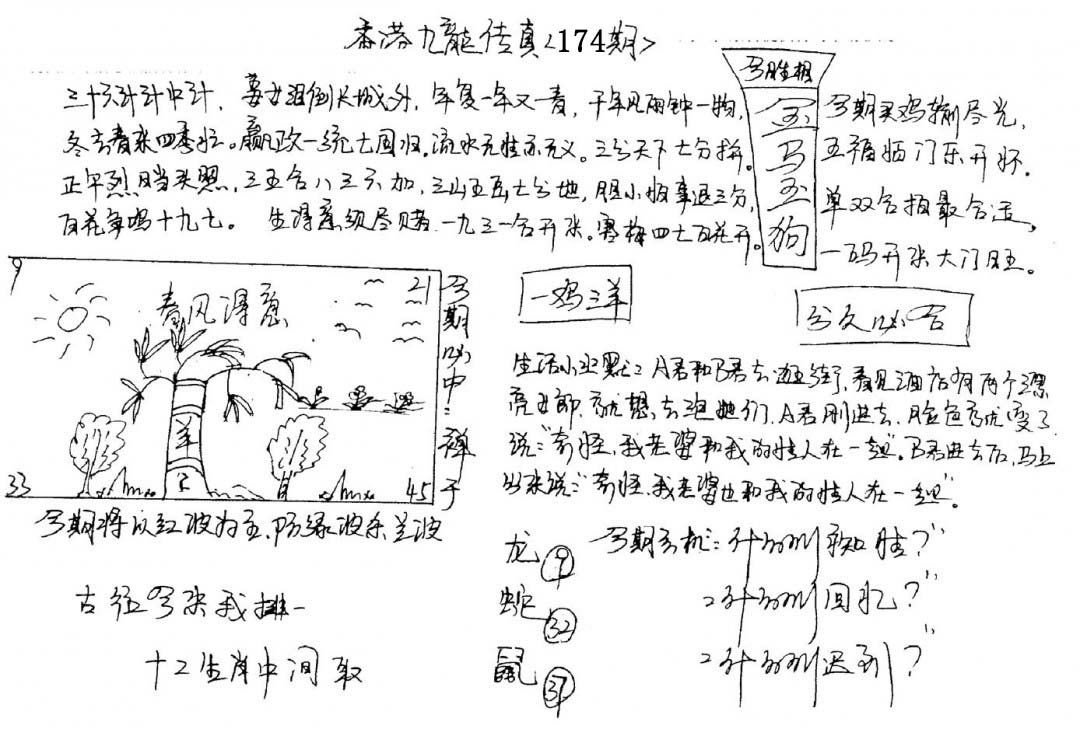 香港九龍传真<174期>
三十六计计中计，姜女泪倒长城外，年复一年又一青，千年风雨钟一物，
冬去春来四季忙。嬴政一统七国归，流水无情亦无义。三分天下七分拚。
正午烈日当头照，三五合八三六加，三山五岳七分地，胆小怕事退三分，
百花争鸣十九七。生得意须尽赌，一九三一合开来。寒梅四七百花开。
今期买鸡输尽光，
五福临门乐开怀。
单双合拍最合适，
一码开来大门旺。
金
马
玉
狗
9
21
春风得意
羊
33
45
今期必中：禅子
一鸡三羊
今期将以红波为主，防绿波杀兰波
生活小幽默：A君和B君去逛街，看见酒店有两个漂
亮女郎，就想去泡她们，A君刚进去，脸色就变了
说："奇怪，我老婆和我的情人在一起"。B君进去后，马上
出来说："奇怪，我老婆也和我的情人在一起"。
龙 9
蛇 32
鼠 37
今期玄机：
回忆？
迟到？
古径今来我排一
十二生肖中间取